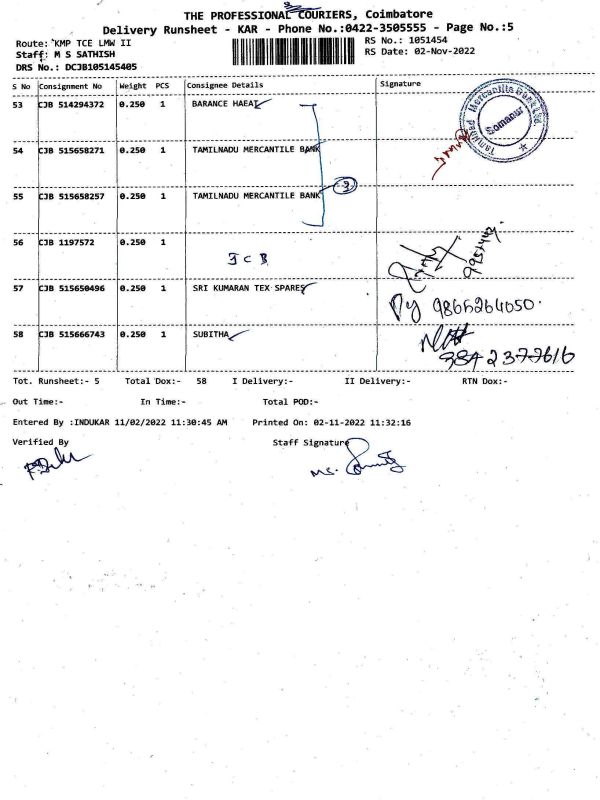 THE PROFESSIONAL COURIERS, Coimbatore
Delivery Runsheet - KAR - Phone No.:0422-3505555 - Page No.:5
Route: KMP TCE LMW II
RS No.: 1051454
Staff: M S SATHISH
RS Date: 02-Nov-2022
DRS No.: DCJB105145405
S No Consignment No Weight PCS Consignee Details Signature
53 CJB 514294372 0.250 1 BARANCE HAEAI
Tamilnad Mercantile Bank Ltd.
Somanur
54 CJB 515658271 0.250 1 TAMILNADU MERCANTILE BANK
55 CJB 515658257 0.250 1 TAMILNADU MERCANTILE BANK
3
56 CJB 1197572 0.250 1
57 CJB 515650496 0.250 1 SRI KUMARAN TEX SPARES
58 CJB 515666743 0.250 1 SUBITHA
Tot. Runsheet:- 5 Total Dox:- 58 I Delivery:- II Delivery:- RTN Dox:-
Out Time:- In Time:- Total POD:-
Entered By :INDUKAR 11/02/2022 11:30:45 AM Printed On: 02-11-2022 11:32:16
Verified By Staff Signature